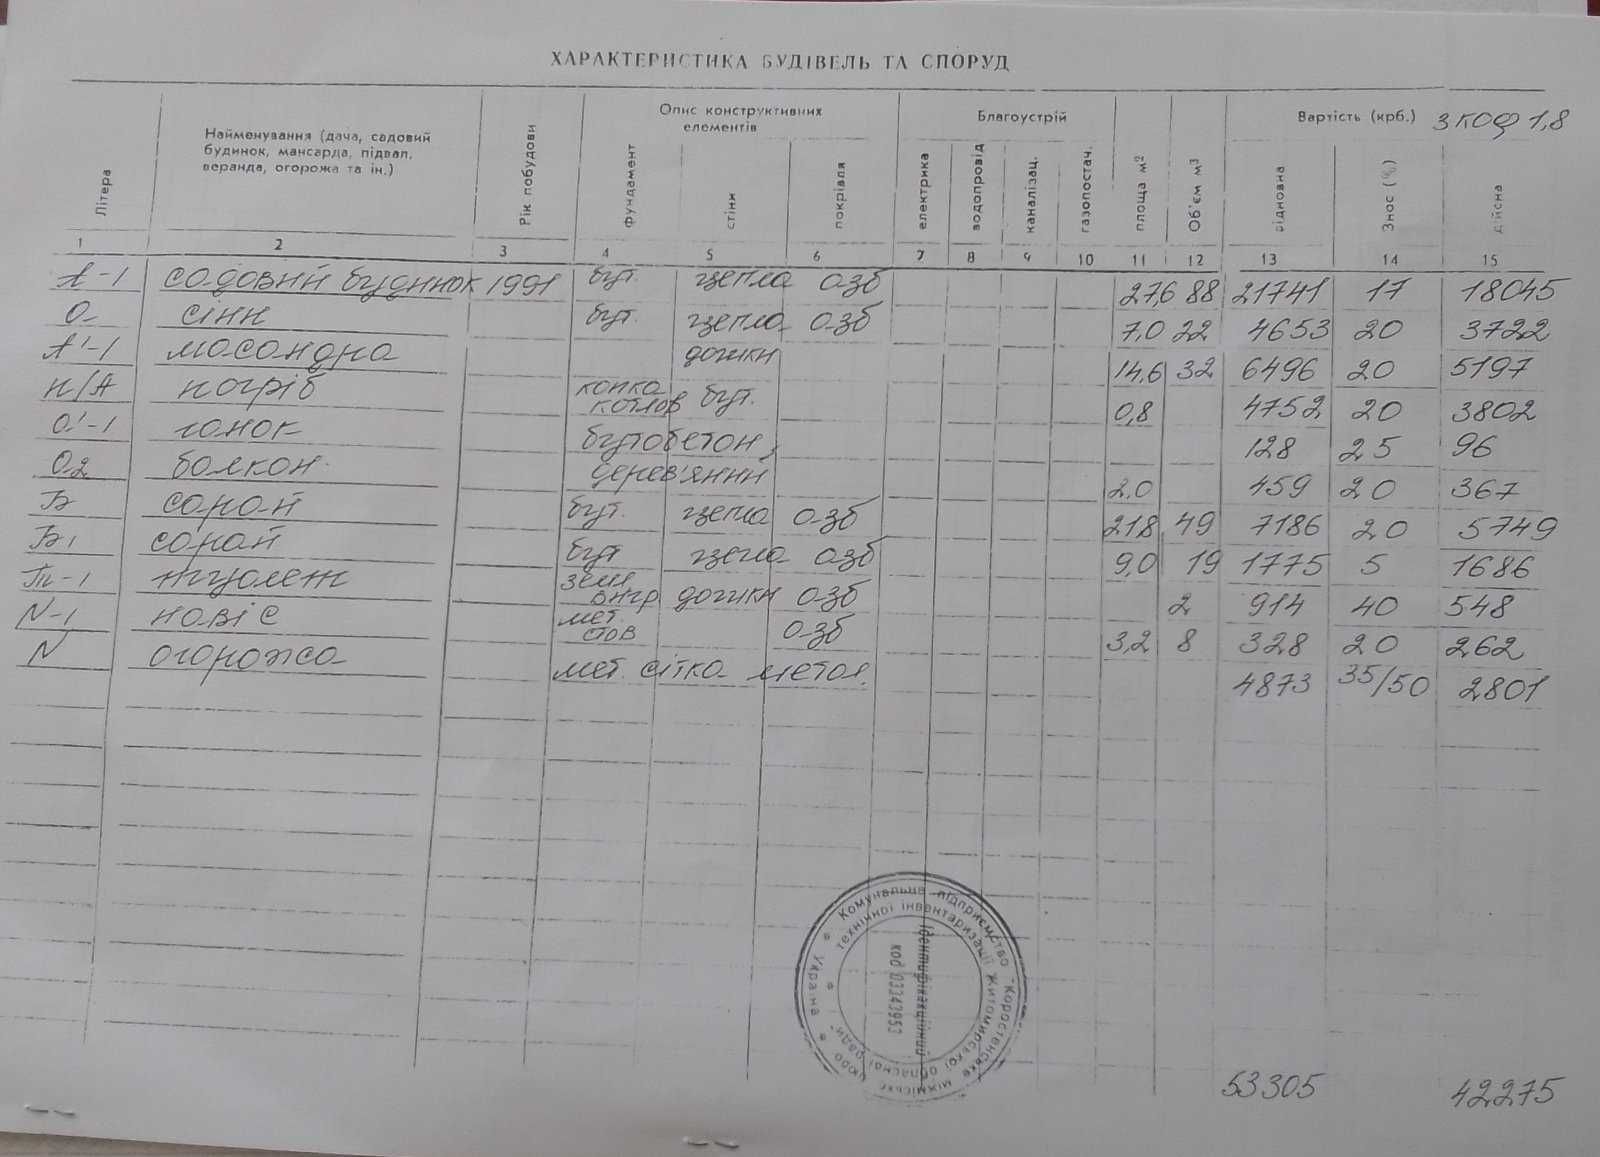 ХАРАКТЕРИСТИКА БУДІВЕЛЬ ТА СПОРУД
Літера
Найменування (дача, садовий
будинок, мансарда, підвал,
веранда, огорожа та ін.)
Рік побудови
Опис конструктивних
елементів
фундамент
стіни
покрівля
Благоустрій
електрика
водопровід
каналізац.
газопостач.
площа м²
Об'єм м³
Вартість (крб.) з коф 1,8
відновна
Знос (%)
дійсна
1 2 3 4 5 6 7 8 9 10 11 12 13 14 15
А-1 садовий будинок 1991 бут. цегла азб 27,6 88 21741 17 18045
а сіни бут. цегла азб 7,0 22 4653 20 3722
А'-1 масандра дошки 14,6 32 6496 20 5197
п/А погріб копка котлов бут. 0,8 4752 20 3802
а'-1 ганок бутобетон 128 25 96
а2 балкон дерев'яний 2,0 459 20 367
Б сарай бут. цегла азб 21,8 49 7186 20 5749
Б1 сарай бут цегла азб 9,0 19 1775 5 1686
дошки азб 2 914 40 548
N-1 навіс мет. стов азб 3,2 8 328 20 262
N огорожа мет. сітка метал. 4873 35/50 2801
53305 42275
Комунальне підприємство "Коростенське міжміське бюро
технічної інвентаризації" Житомирської обласної ради
* Україна *
Ідентифікаційний
код 03343953